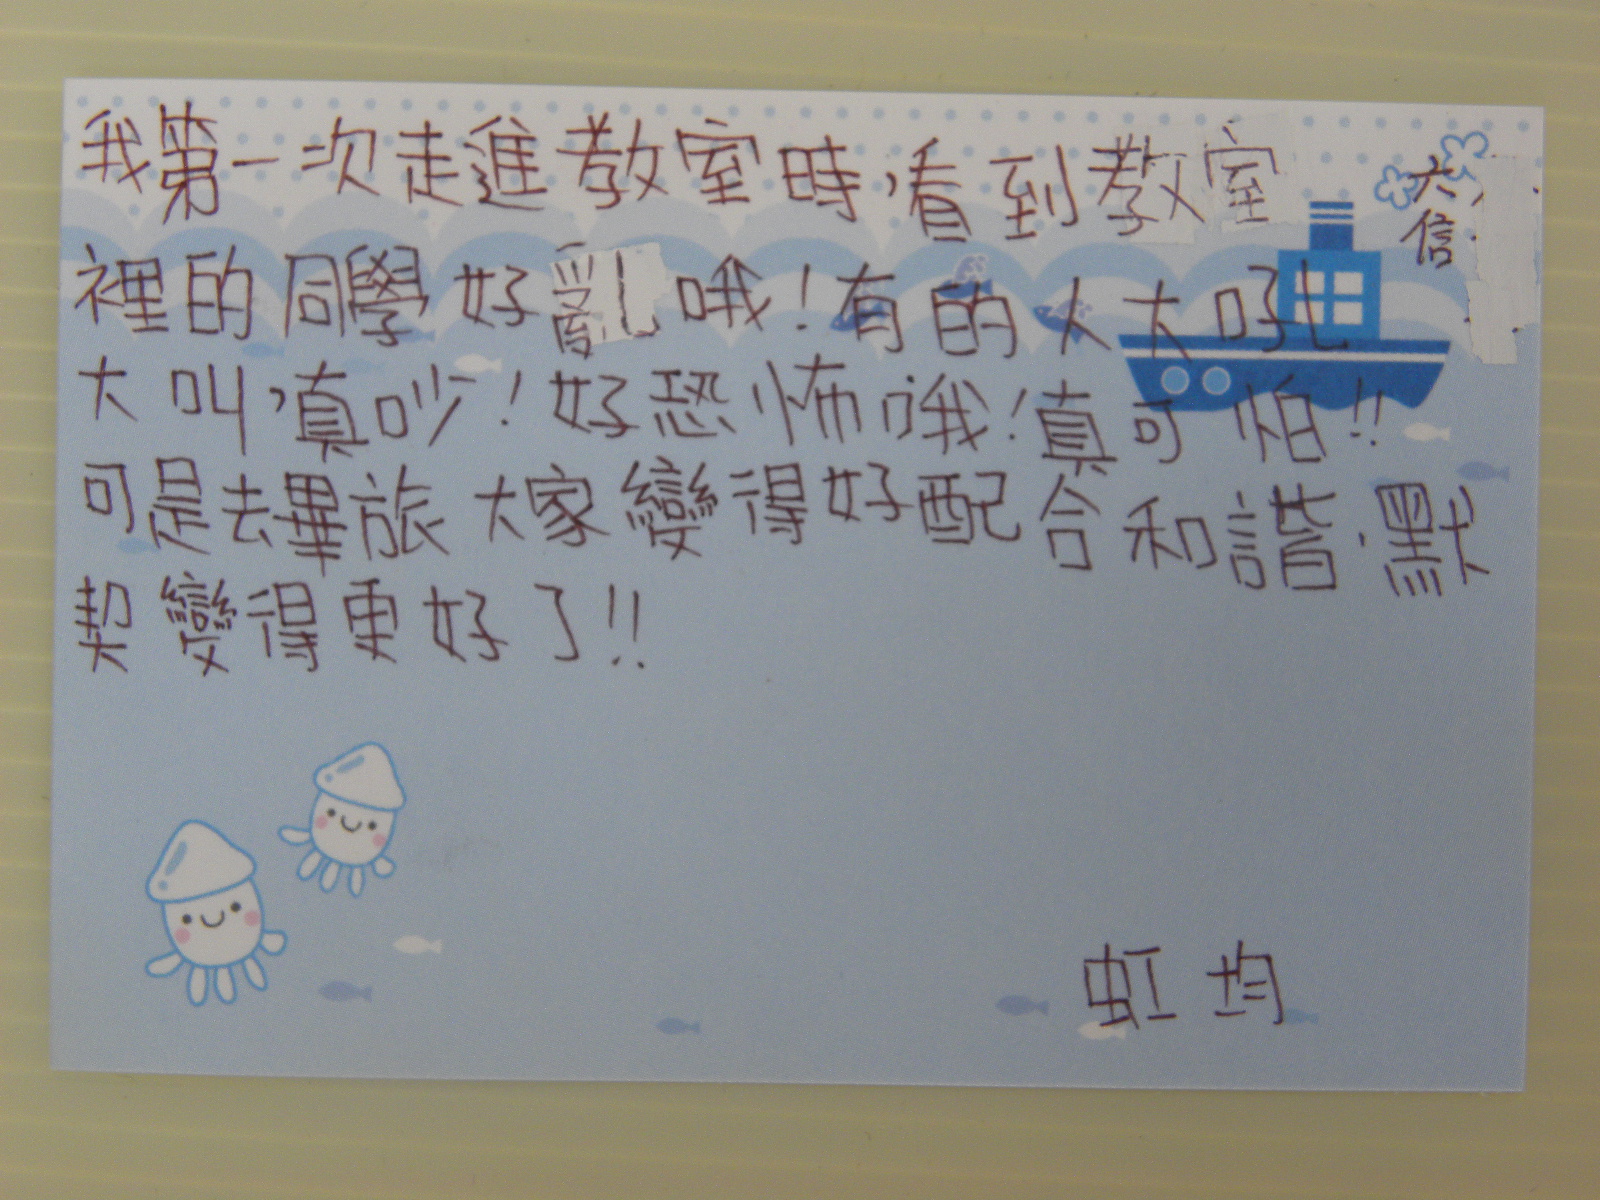 我第一次走進教室時,看到教室
裡的同學好亂哦!有的人大吼
大叫,真吵!好恐怖哦!真可怕!!
可是去畢旅大家變得好配合和諧.默
契變得更好了!!
六
信
虹均